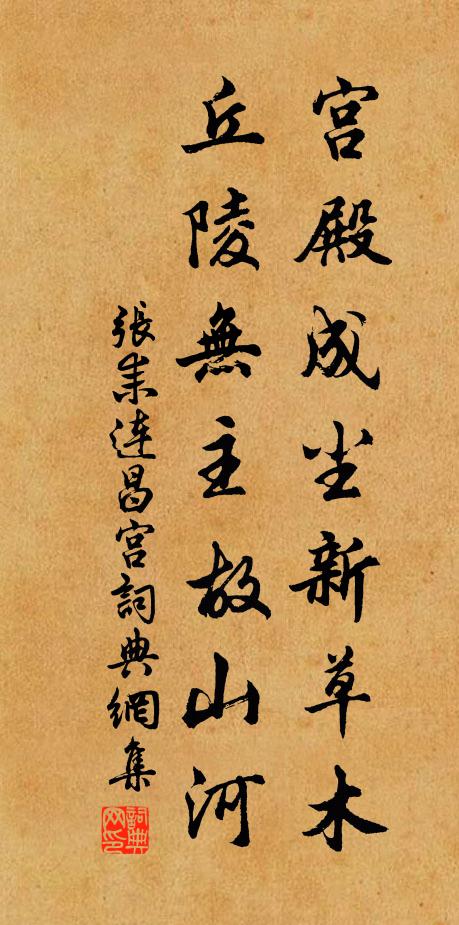 宫殿成尘新草木
丘陵無主故山河
張耒連昌宫詞典網集
詞典网印